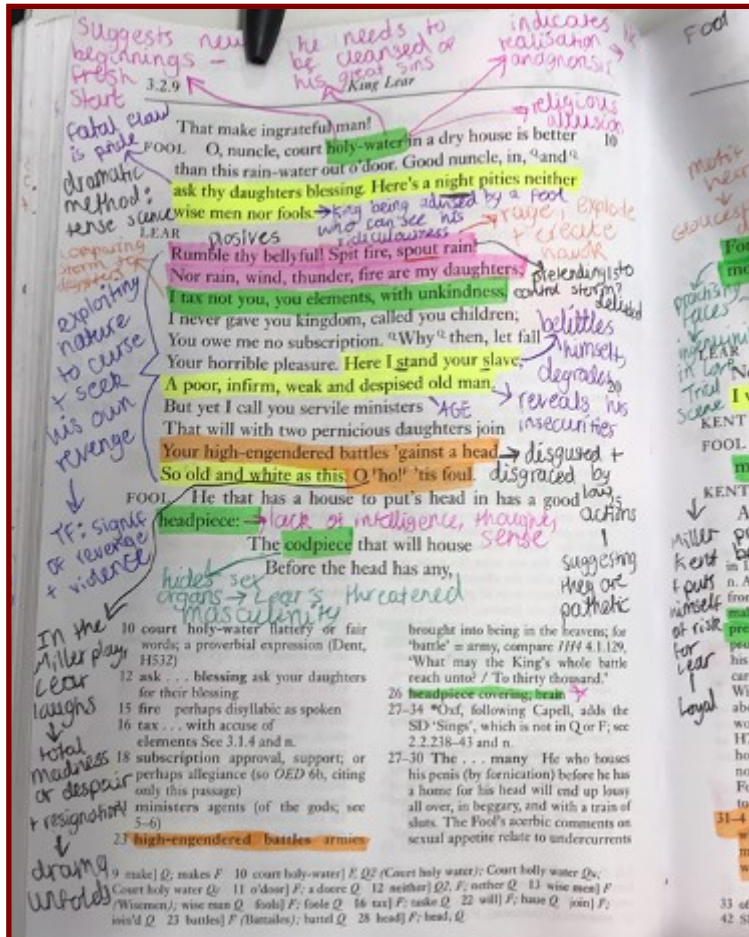 Suggests new
beginnings -
fresh
start
he needs to
be cleansed of
his great sins
indicates
realisation
religious
allusion
3.2.9
King Lear
That make ingrateful man!
FOOL O, nuncle, court holy-water in a dry house is better 10
than this rain-water out o'door. Good nuncle, in, Qand Q
ask thy daughters blessing. Here's a night pities neither
wise men nor fools.
LEAR
Rumble thy bellyful! Spit fire, spout rain!
Nor rain, wind, thunder, fire are my daughters;
I tax not you, you elements, with unkindness.
I never gave you kingdom, called you children;
You owe me no subscription. QWhyQ then, let fall
Your horrible pleasure. Here I stand your slave,
A poor, infirm, weak and despised old man. 20
But yet I call you servile ministers
That will with two pernicious daughters join
Your high-engendered battles 'gainst a head
So old and white as this. O 'ho!' 'tis foul.
FOOL He that has a house to put's head in has a good 25
headpiece:
The codpiece that will house
Before the head has any,
fatal flaw
is pride
dramatic
method:
tense scene
plosives
king being advised by a fool
who can see his
ridiculousness
rage, explode
+ create
havoc
comparing
storm to
daughters
exploiting
nature
to curse
+ seek
his own
revenge
TF: signif
of revenge
+ violence
pretending is to
control storm?
deluded
belittles
himself,
degrades
reveals his
insecurities
AGE
disgusted +
disgraced by
low
actions
suggesting
they are
pathetic
lack of intelligence, thought,
sense
hides sex
organs → Lear's threatened
masculinity
In the
Miller play,
Lear
laughs
total
madness
or despair
+ resignation
drama
unfolds
10 court holy-water flattery or fair
words; a proverbial expression (Dent,
H532)
12 ask . . . blessing ask your daughters
for their blessing
15 fire perhaps disyllabic as spoken
16 tax . . . with accuse of
elements See 3.1.4 and n.
18 subscription approval, support; or
perhaps allegiance (so OED 6b, citing
only this passage)
ministers agents (of the gods; see
5–6)
23 high-engendered battles armies
brought into being in the heavens; for
'battle' = army, compare 1H4 4.1.129,
'What may the King's whole battle
reach unto? / To thirty thousand.'
26 headpiece covering; brain
27–34 *Oxf, following Capell, adds the
SD 'Sings', which is not in Q or F; see
2.2.238–43 and n.
27–30 The . . . many He who houses
his penis (by fornication) before he has
a home for his head will end up lousy
all over, in beggary, and with a train of
sluts. The Fool's acerbic comments on
sexual appetite relate to undercurrents
9 make] Q; makes F 10 court holy-water] F, Q2 (Court holy water); Court holly water Qu,
Court holy water Q 11 o'door] F; a doore Q 12 neither] Q2, F; nether Q 13 wise men] F
(Wisemen); wise man Q fools] F; foole Q 16 tax] F; taske Q 22 will] F; haue Q join] F;
ioin'd Q 23 battles] F (Battailes); battel Q 28 head] F; head, Q
Fool
LEAR
KENT
FOOL
KENT
Miller
Kent
+ puts
himself
at risk
for
Lear
Loyal
31–4
33 of